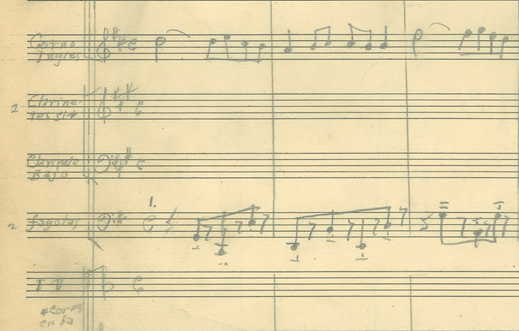 Corno
Ingles
2 Clarine-
tes si b
Clarinete
Bajo
1.
2 fagotes
I II
4 cornos
en fa